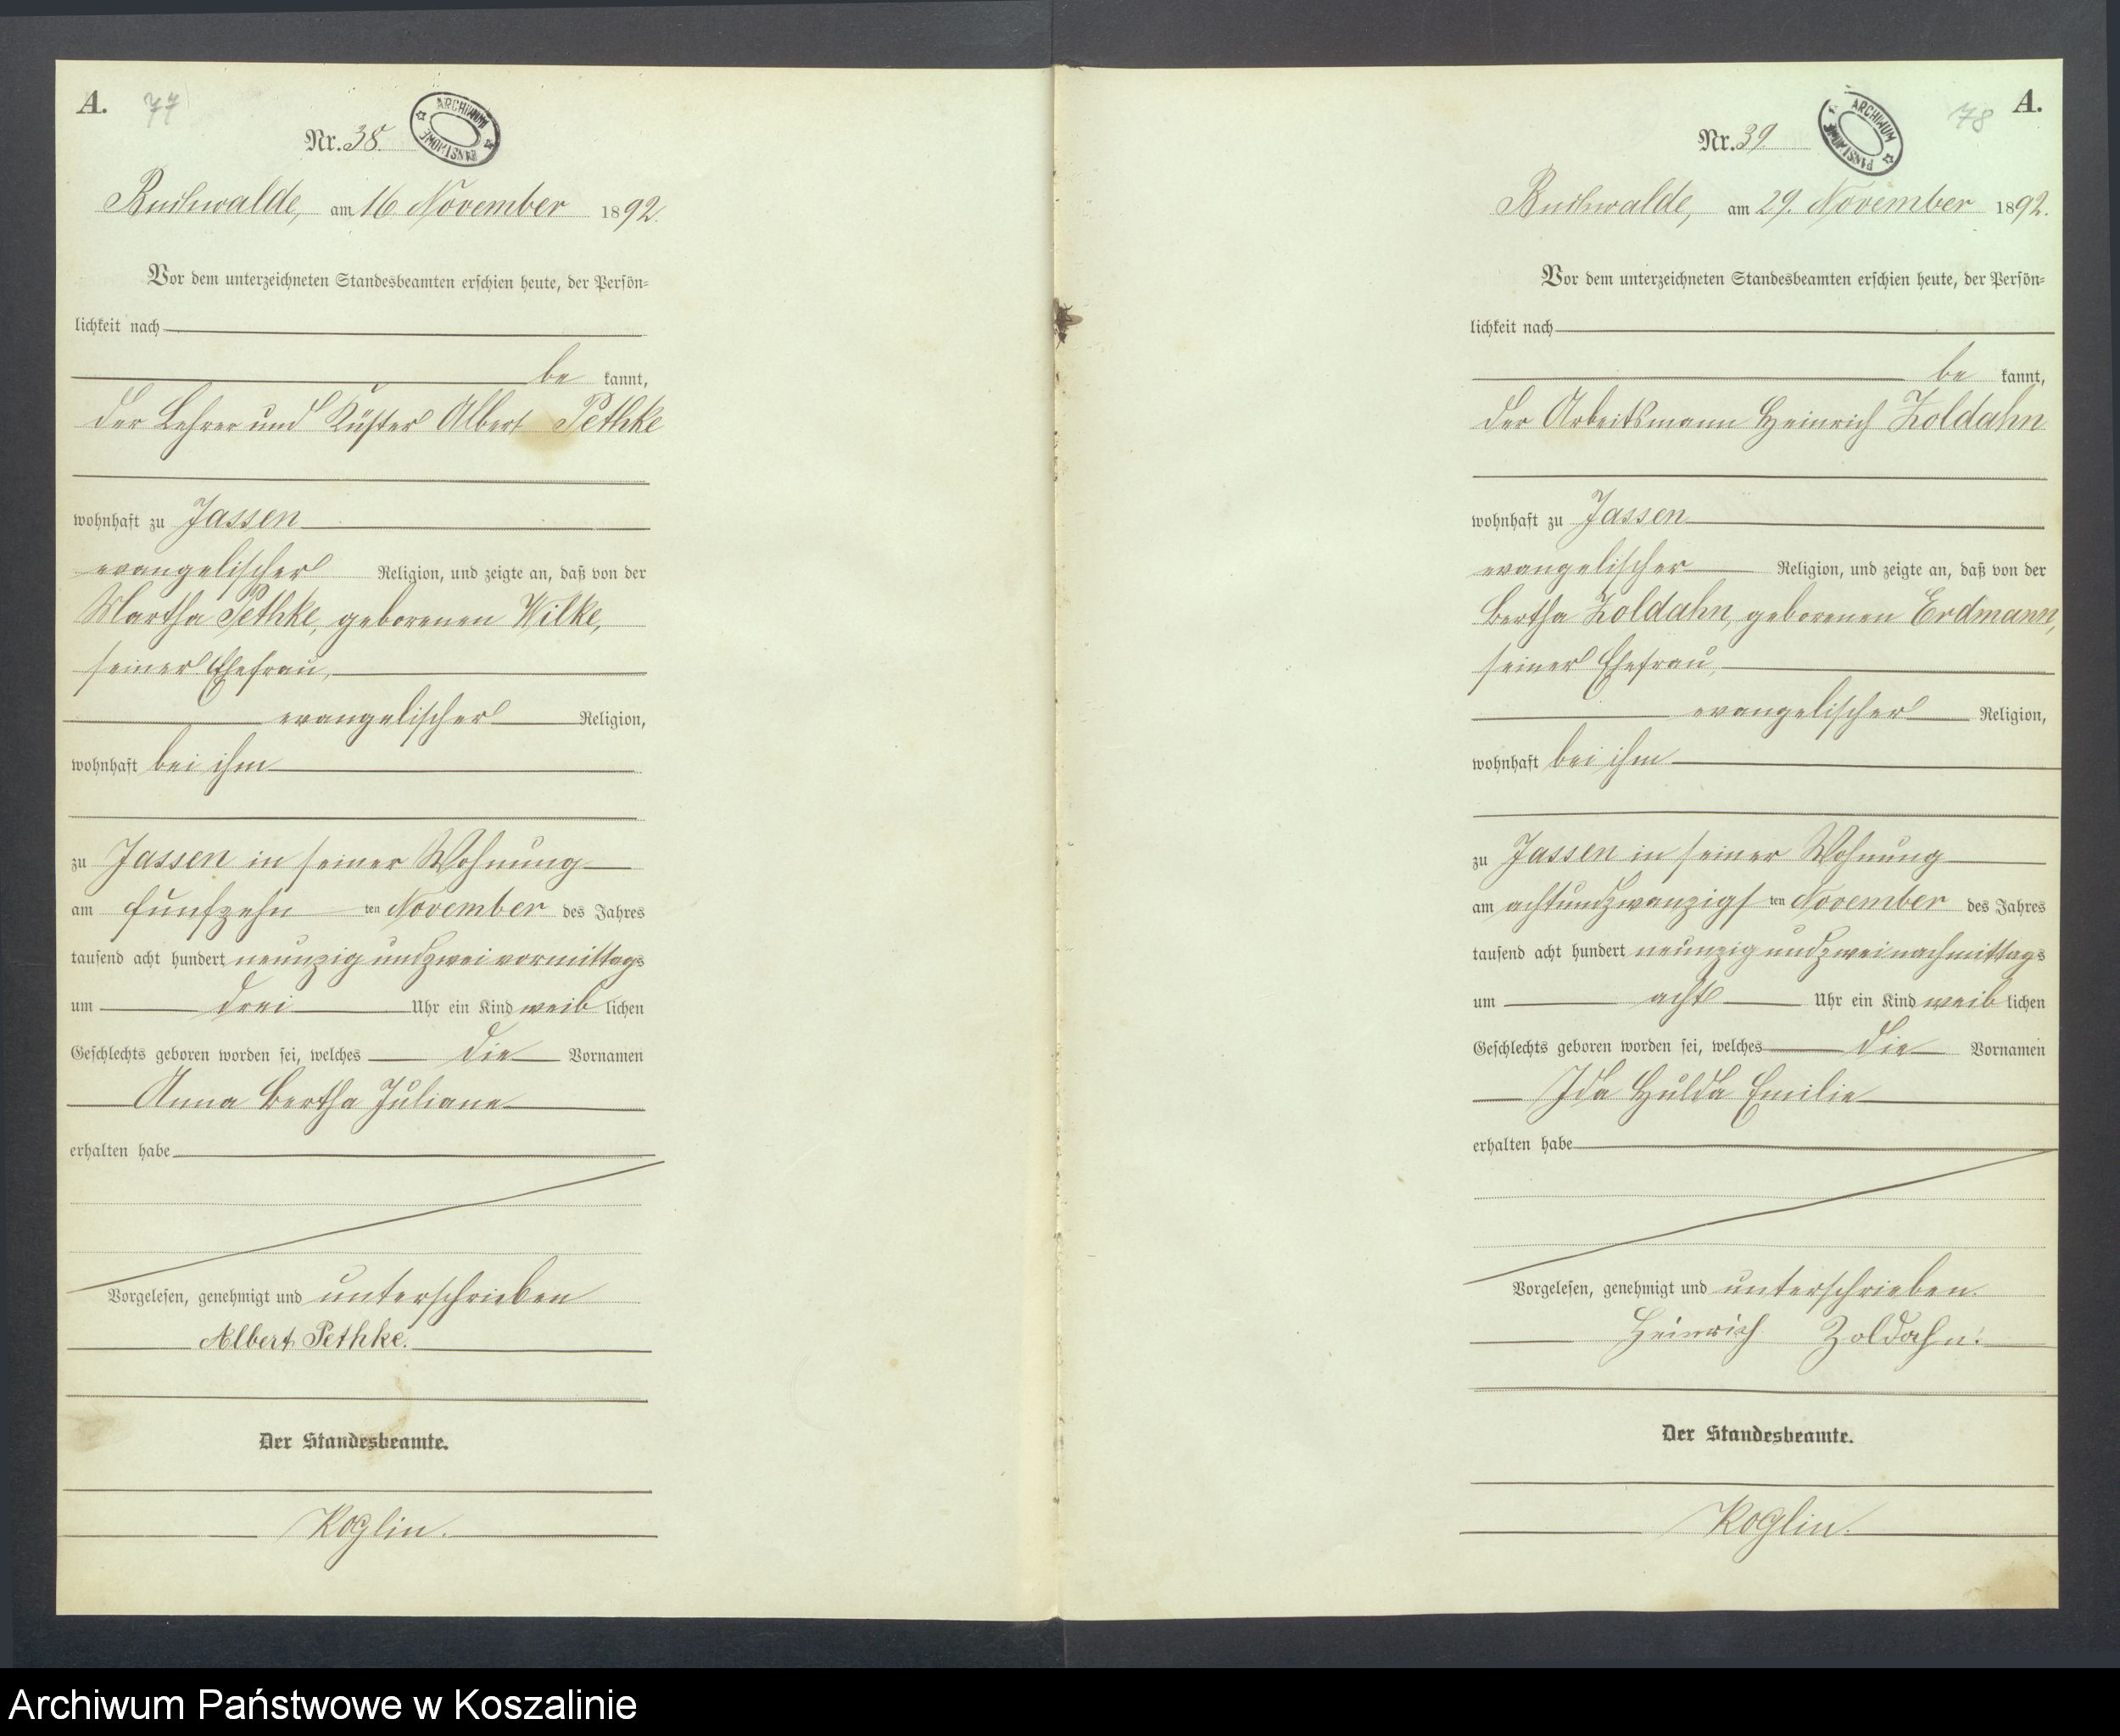 A. 77
ARCHIWUM PAŃSTWOWE
Nr. 38.
Buchwalde, am 16 November 1892.
Vor dem unterzeichneten Standesbeamten erschien heute, der Persön-
lichkeit nach
be kannt,
der Lehrer und Küster Albert Pethke
wohnhaft zu Jassen
evangelischer Religion, und zeigte an, daß von der
Martha Pethke, geborenen Wilke,
seiner Ehefrau,
evangelischer Religion,
wohnhaft bei ihm
zu Jassen in seiner Wohnung
am fünfzehn ten November des Jahres
tausend acht hundert neunzig und zwei vormittags
um drei Uhr ein Kind weib lichen
Geschlechts geboren worden sei, welches die Vornamen
Anna Bertha Juliane
erhalten habe
Vorgelesen, genehmigt und unterschrieben
Albert Pethke.
Der Standesbeamte.
Koglin.
78 A.
ARCHIWUM PAŃSTWOWE
Nr. 39
Buchwalde, am 29. November 1892.
Vor dem unterzeichneten Standesbeamten erschien heute, der Persön-
lichkeit nach
be kannt,
der Arbeitsmann Heinrich Zoldahn
wohnhaft zu Jassen
evangelischer Religion, und zeigte an, daß von der
Bertha Zoldahn, geborenen Erdmann,
seiner Ehefrau,
evangelischer Religion,
wohnhaft bei ihm
zu Jassen in seiner Wohnung
am achtundzwanzigs ten November des Jahres
tausend acht hundert neunzig und zwei nachmittags
um acht Uhr ein Kind weib lichen
Geschlechts geboren worden sei, welches die Vornamen
Ida Hulda Emilie
erhalten habe
Vorgelesen, genehmigt und unterschrieben.
Heinrich Zoldahn.
Der Standesbeamte.
Koglin.
Archiwum Państwowe w Koszalinie